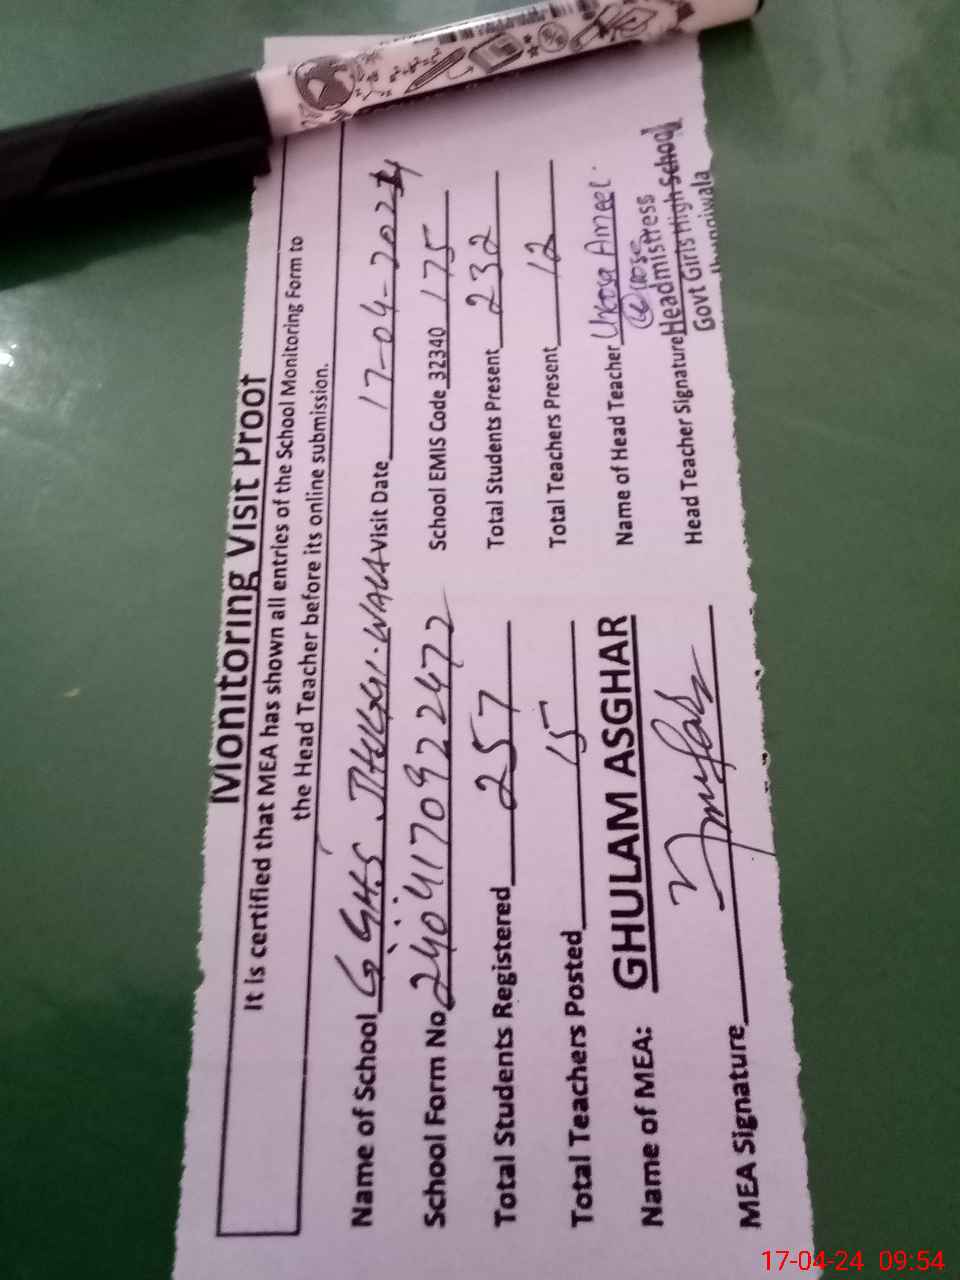 Monitoring Visit Proof
It is certified that MEA has shown all entries of the School Monitoring Form to
the Head Teacher before its online submission.
Name of School G.G.H.S JHUGGI.WALA Visit Date 17-04-2024
School Form No 2404170922472 School EMIS Code 32340 175
Total Students Registered 257 Total Students Present 232
Total Teachers Posted 15 Total Teachers Present 12
Name of MEA: GHULAM ASGHAR Name of Head Teacher
MEA Signature Head Teacher Signature Headmistress
Govt Girls High School
17-04-24 09:54